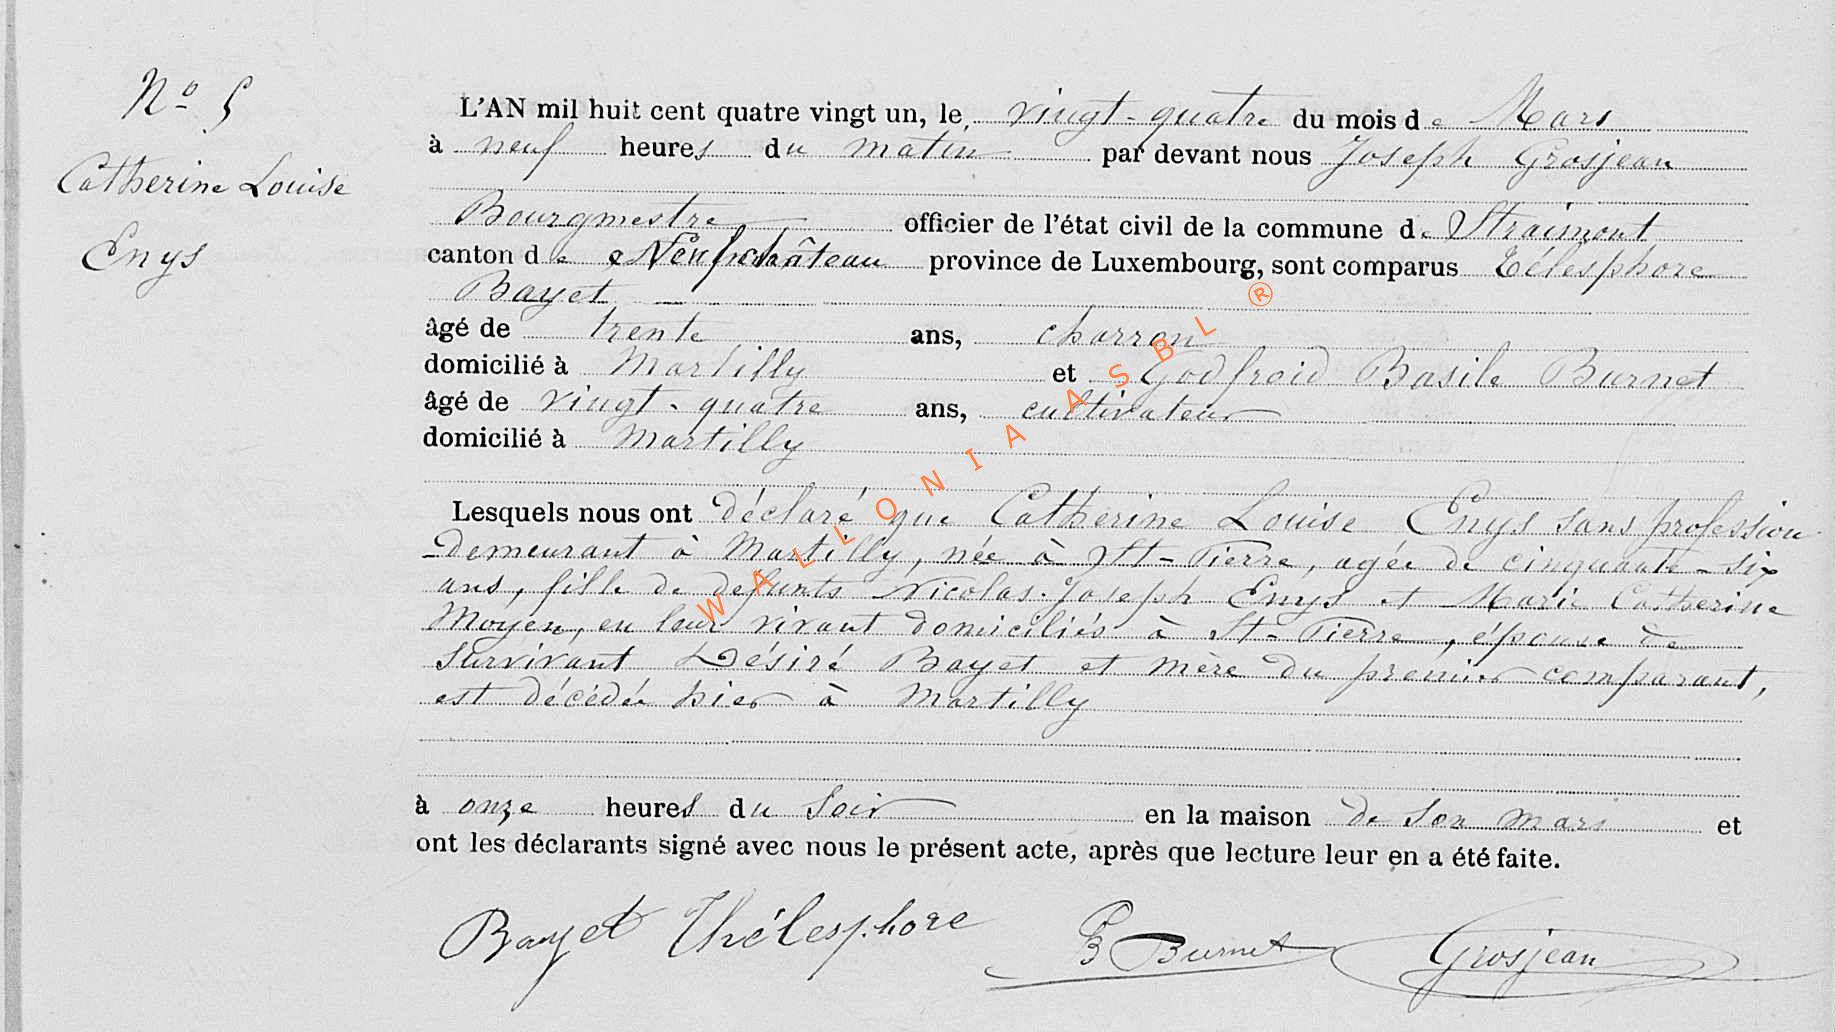 Nº 5
Catherine Louise
Enys
L'AN mil huit cent quatre vingt un, le vingt-quatre du mois de Mars
à neuf heures du matin par devant nous Joseph Grosjean
Bourgmestre officier de l'état civil de la commune de Straimont
canton de Neufchâteau province de Luxembourg, sont comparus Télesphore
Bayet
âgé de trente ans, charron
domicilié à Martilly et Godfroid Basile Burnet
âgé de vingt-quatre ans, cultivateur
domicilié à Martilly
Lesquels nous ont déclaré que Catherine Louise Enys sans profession
demeurant à Martilly, née à St-Pierre, agée de cinquante-six
ans, fille de defunts Nicolas-Joseph Enys et Marie Catherine
Moyen, en leur vivant domiciliés à St-Pierre, épouse de
survivant Désiré Bayet et mère du premier comparant,
est décédée hier à Martilly
à onze heures du soir en la maison de son mari et
ont les déclarants signé avec nous le présent acte, après que lecture leur en a été faite.
Bayet Thélesphore B Burnet Grosjean
WALLONIA ASBL ®